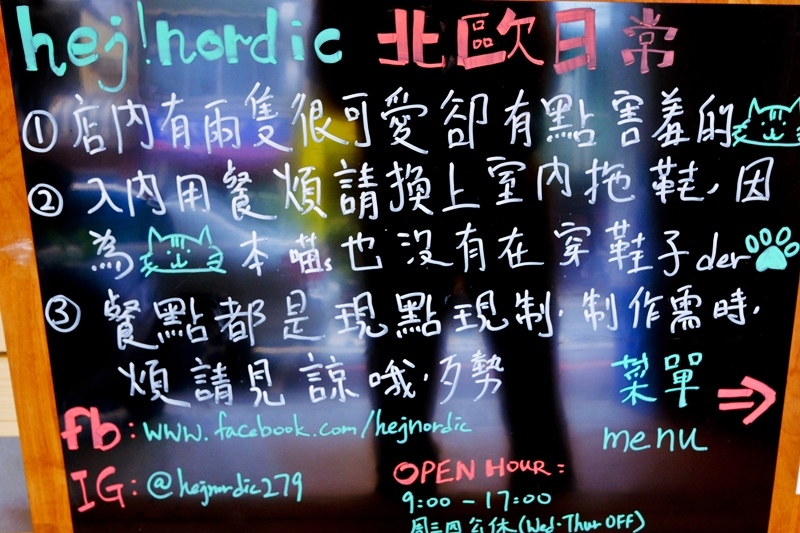 hej!nordic 北歐日常
①店內有兩隻很可愛卻有點害羞的
②入內用餐煩請換上室內拖鞋,因
為 本喵s也沒有在穿鞋子der
③餐點都是現點現制,制作需時,
煩請見諒哦,歹勢
菜單
menu
fb:www.facebook.com/hejnordic
IG:@hejnordic279
OPEN HOUR:
9:00-17:00
周三四公休(Wed.Thur OFF)